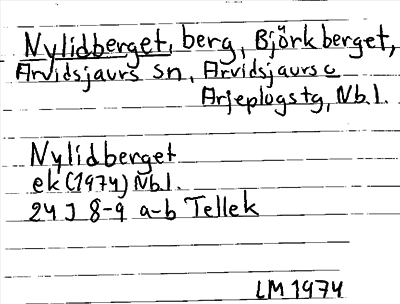 Nylidberget, berg, Björkberget,
Arvidsjaurs sn, Arvidsjaurs o
Arjeplogs tg, Nb.l.
Nylidberget
ek (1974) Nb.l.
24 J 8-9 a-b Tellek
LM 1974